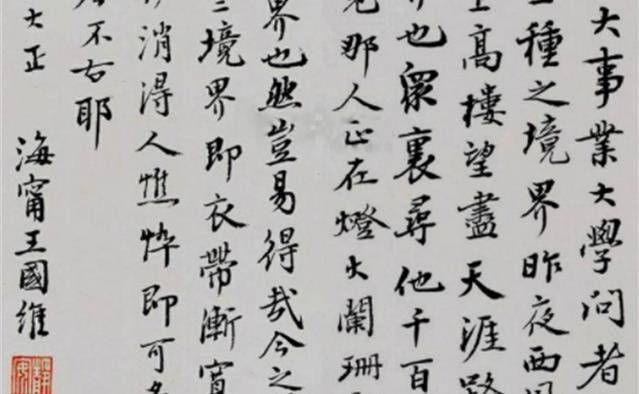 大事業大學問者
種之境界昨夜西
高樓望盡天涯路
界也眾裏尋他千百
見那人正在燈火闌珊
界也然豈易得哉今之
三境界即衣帶漸寬
消得人憔悴即可
不右耶
大正 海甯王國維
靜安